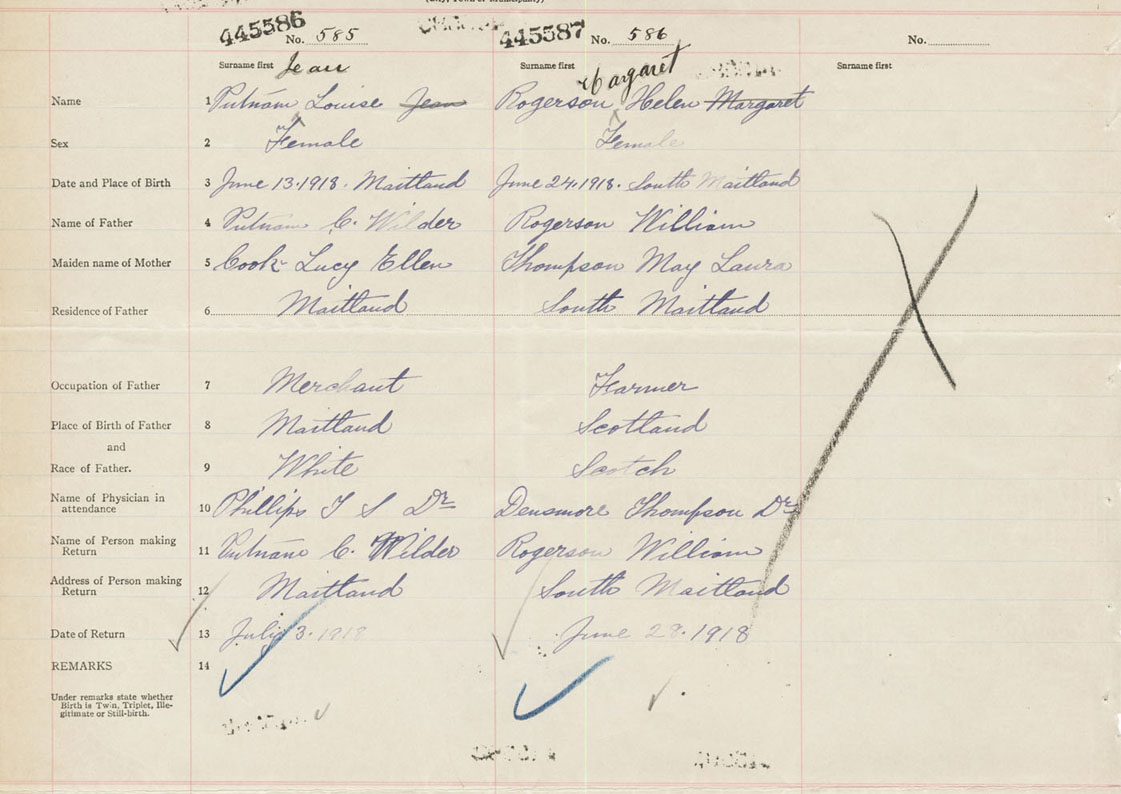 (City, Town or Municipality)
445586 No. 585 445587 No. 586 No.
Surname first Jean Surname first Margaret Surname first
Name 1 Putnam Louise Jean Rogerson Helen Margaret
Sex 2 Female Female
Date and Place of Birth 3 June 13.1918. Maitland June 24.1918. South Maitland
Name of Father 4 Putnam C. Wilder Rogerson William
Maiden name of Mother 5 Cook Lucy Ellen Thompson May Laura
Residence of Father 6 Maitland South Maitland
Occupation of Father 7 Merchant Farmer
Place of Birth of Father 8 Maitland Scotland
and
Race of Father. 9 White Scotch
Name of Physician in
attendance 10 Phillips T S Dr Densmore Thompson Dr
Name of Person making
Return 11 Putnam C. Wilder Rogerson William
Address of Person making
Return 12 Maitland South Maitland
Date of Return 13 July 3.1918 June 28.1918
REMARKS 14
Under remarks state whether
Birth is Twin, Triplet, Ille-
gitimate or Still-birth.